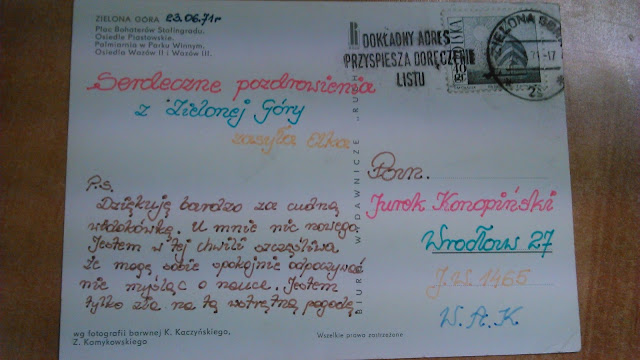 ZIELONA GÓRA 23.06.71r
Plac Bohaterów Stalingradu,
Osiedle Piastowskie.
Palmiarnia w Parku Winnym,
Osiedla Wazów II i Wazów III.
DOKŁADNY ADRES
PRZYSPIESZA DORĘCZENIE
LISTU
POLSKA
ZIELONA GÓRA
Serdeczne pozdrowienia
z Zielonej Góry
zasyła Elka
P.S.
Dziękuję bardzo za cudną
widokówkę. U mnie nic nowego.
Jestem w tej chwili szczęśliwa
że mogę sobie spokojnie odpoczywać
nie myśląc o nauce. Jestem
tylko zła na tą wstrętną pogodę
BIURO WYDAWNICZE „RUCH”
Pan.
Jurek Konopiński
Wrocław 27
J.W. 1465
W.A.K
wg fotografii barwnej K. Kaczyńskiego,
Z. Komykowskiego
Wszelkie prawa zastrzeżone